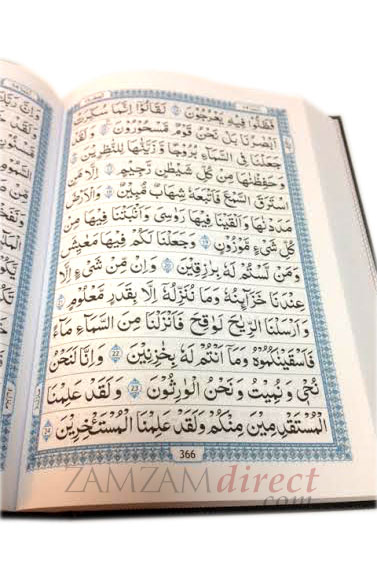 فَظَلُّوْا فِيْهِ يَعْرُجُوْنَ لَقَالُوْۤا اِنَّمَا سُكِّرَتْ
اَبْصَارُنَا بَلْ نَحْنُ قَوْمٌ مَّسْحُوْرُوْنَ وَلَقَدْ
جَعَلْنَا فِي السَّمَآءِ بُرُوْجًا وَّ زَيَّنّٰهَا لِلنّٰظِرِيْنَ
وَحَفِظْنٰهَا مِنْ كُلِّ شَيْطٰنٍ رَّجِيْمٍ اِلَّا مَنِ
اسْتَرَقَ السَّمْعَ فَاَتْبَعَهٗ شِهَابٌ مُّبِيْنٌ وَالْاَرْضَ
مَدَدْنٰهَا وَاَلْقَيْنَا فِيْهَا رَوَاسِيَ وَاَنْۢبَتْنَا فِيْهَا مِنْ
كُلِّ شَيْءٍ مَّوْزُوْنٍ وَجَعَلْنَا لَكُمْ فِيْهَا مَعَايِشَ
وَمَنْ لَّسْتُمْ لَهٗ بِرٰزِقِيْنَ وَاِنْ مِّنْ شَيْءٍ اِلَّا
عِنْدَنَا خَزَآئِنُهٗ وَمَا نُنَزِّلُهٗۤ اِلَّا بِقَدَرٍ مَّعْلُوْمٍ
وَاَرْسَلْنَا الرِّيٰحَ لَوَاقِحَ فَاَنْزَلْنَا مِنَ السَّمَآءِ مَآءً
فَاَسْقَيْنٰكُمُوْهُ وَمَاۤ اَنْتُمْ لَهٗ بِخٰزِنِيْنَ 22 وَاِنَّا لَنَحْنُ
نُحْيٖ وَنُمِيْتُ وَنَحْنُ الْوٰرِثُوْنَ 23 وَلَقَدْ عَلِمْنَا
الْمُسْتَقْدِمِيْنَ مِنْكُمْ وَلَقَدْ عَلِمْنَا الْمُسْتَاْخِرِيْنَ 24
366
ZAMZAMdirect
.com